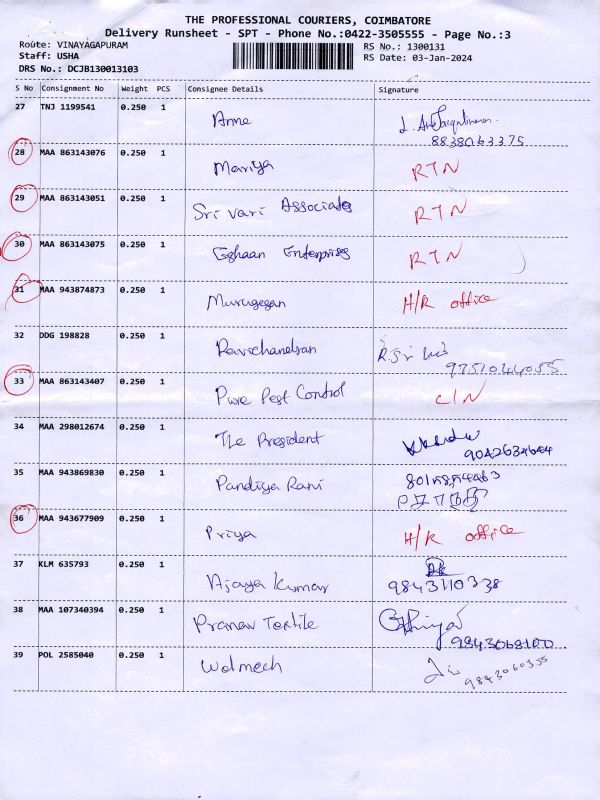 THE PROFESSIONAL COURIERS, COIMBATORE
Delivery Runsheet - SPT - Phone No.:0422-3505555 - Page No.:3
Route: VINAYAGAPURAM RS No.: 1300131
Staff: USHA RS Date: 03-Jan-2024
DRS No.: DCJB130013103
S No Consignment No Weight PCS Consignee Details Signature
27 TNJ 1199541 0.250 1 Anne
8838063375
28 MAA 863143076 0.250 1 Mariya RTN
29 MAA 863143051 0.250 1 Sri Vari Associates RTN
30 MAA 863143075 0.250 1 Eghaan Enterprises RTN
31 MAA 943874873 0.250 1 Murugesan H/R office
32 DDG 198828 0.250 1 Ravichandran
9751044055
33 MAA 863143407 0.250 1 Pure Pest Control C/N
34 MAA 298012674 0.250 1 The President
35 MAA 943869830 0.250 1 Pandiya Rani
36 MAA 943677909 0.250 1 Priya H/R office
37 KLM 635793 0.250 1 Ajaya Kumar
9843110338
38 MAA 107340394 0.250 1 Pranav Textile
9843068100
39 POL 2585040 0.250 1 Walmech
9843060355